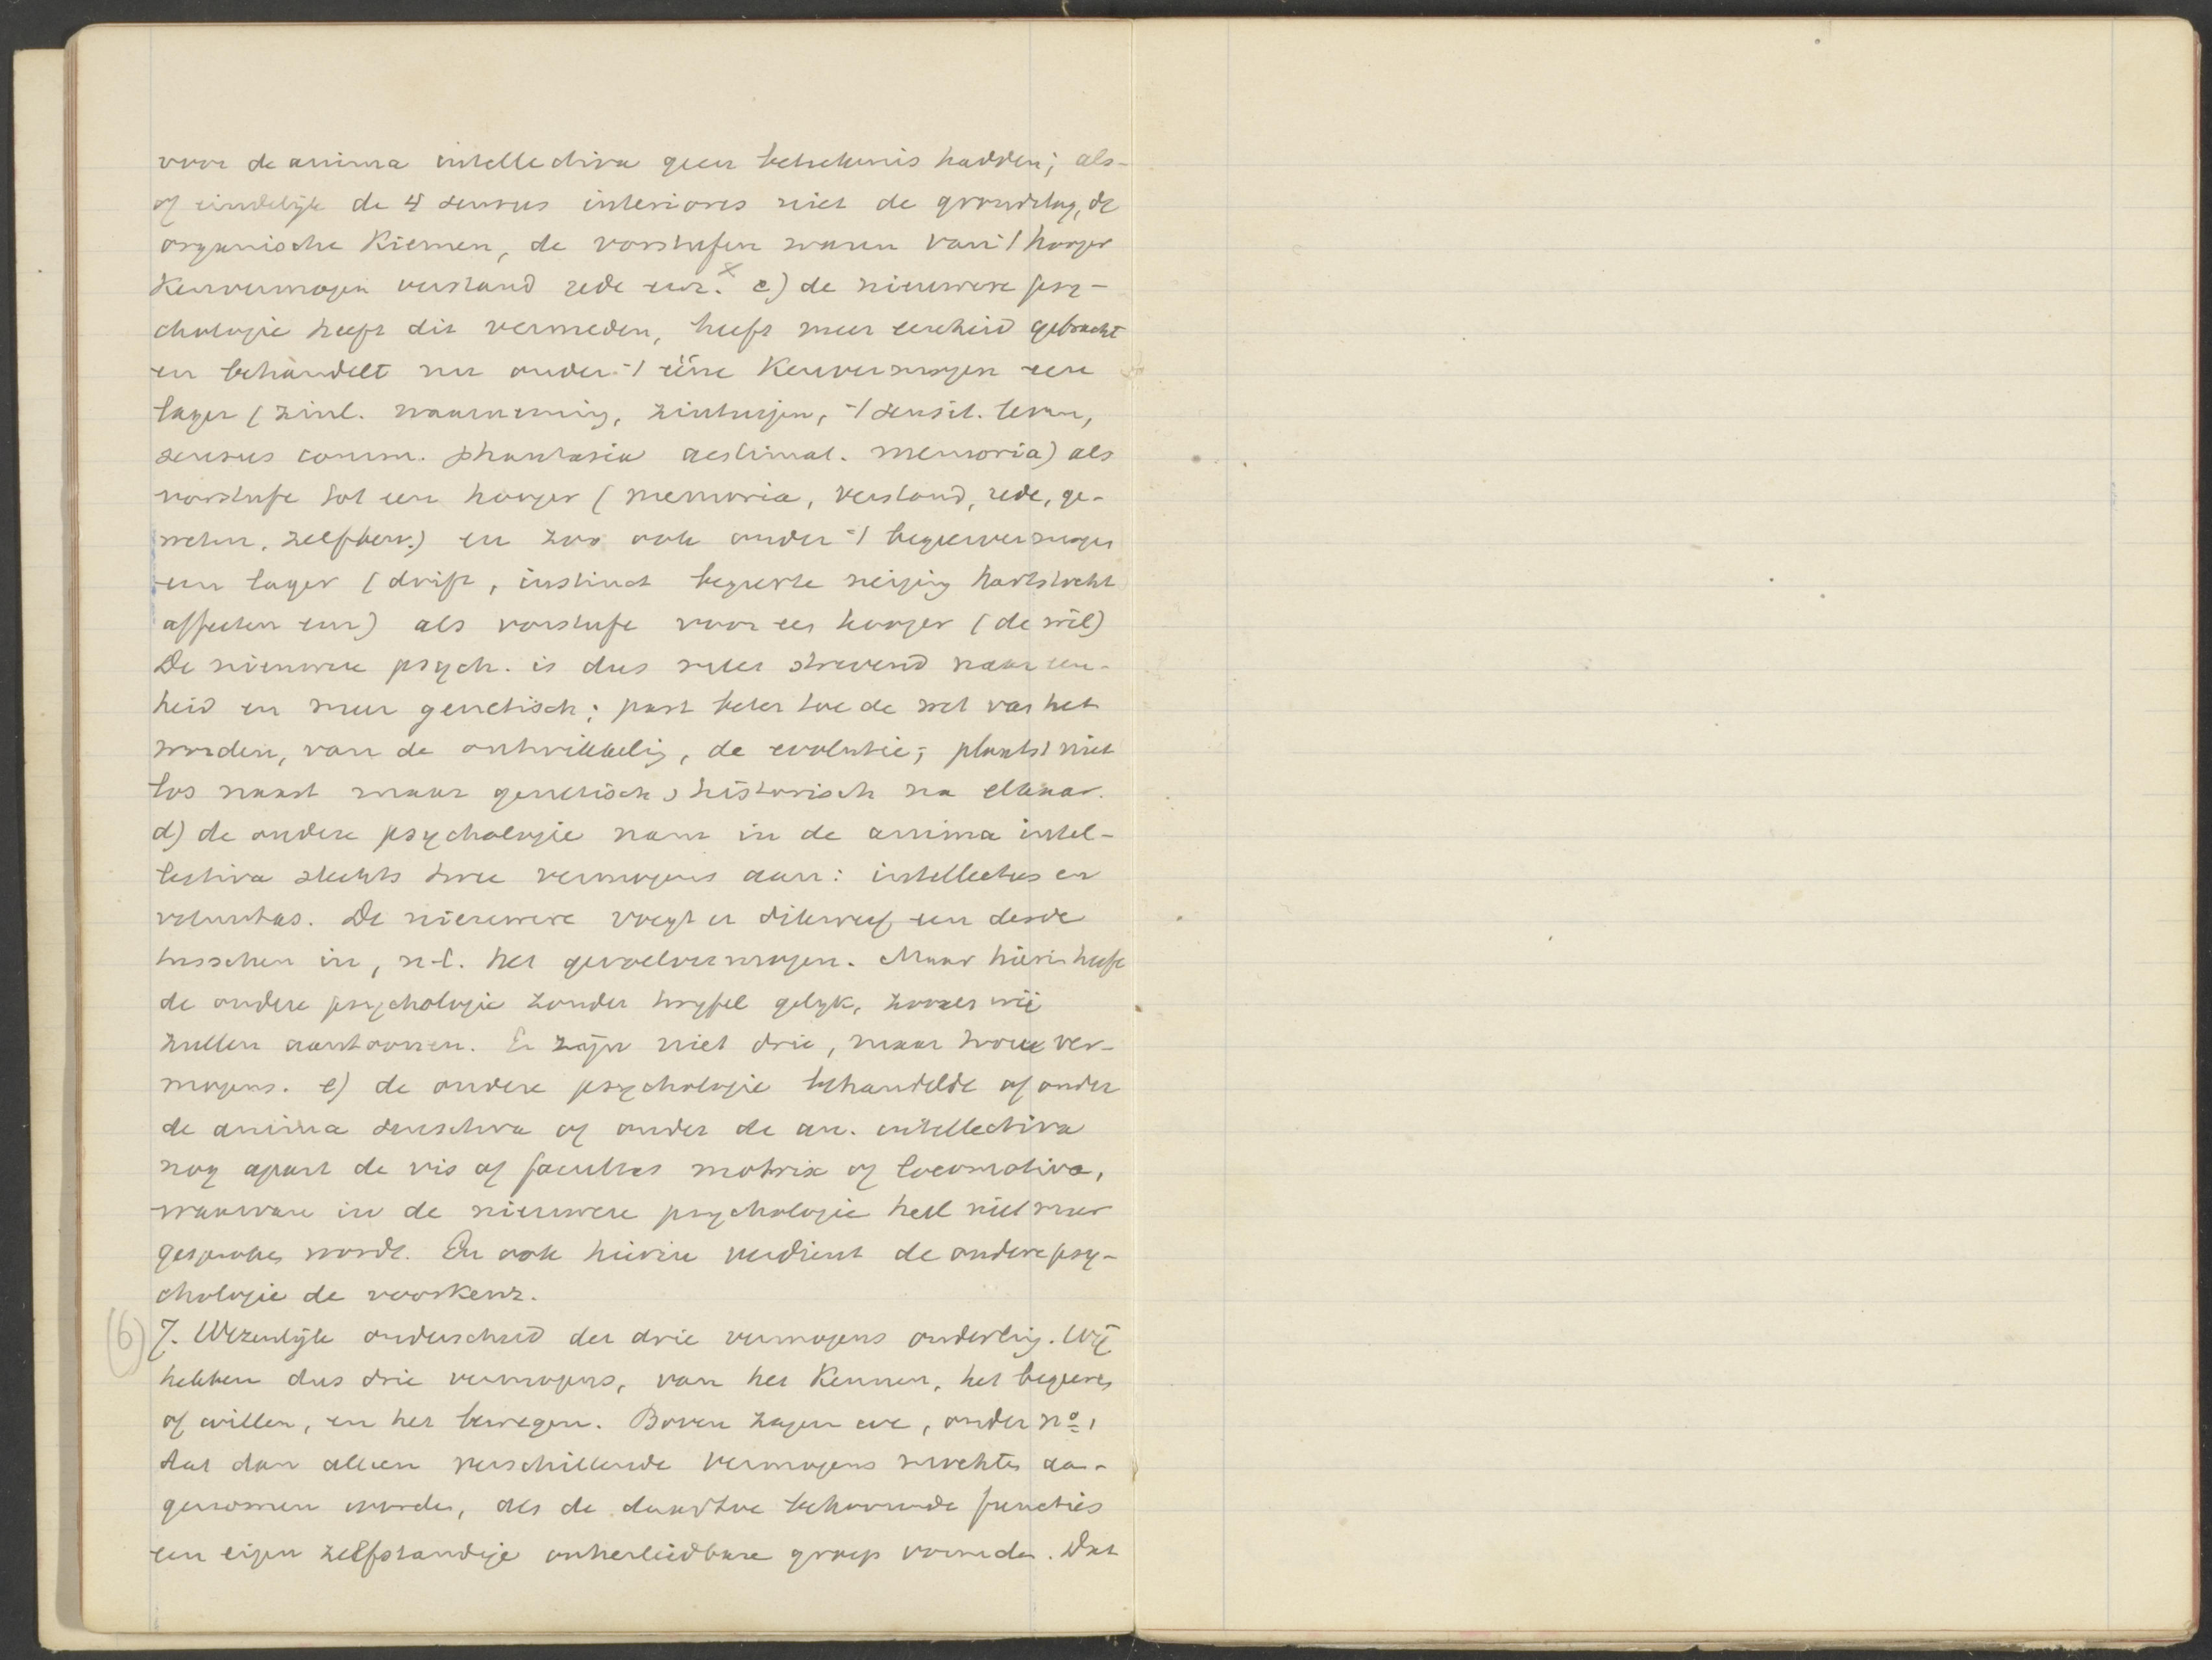 voor de anima intellectiva geen betekenis hadden; als-
of eindelijk de 4 sensus interiores niet de grondslag, de
organische Kiemen, de vorstufen waren van 't hooger
Kenvermogen verstand rede enz. x c) de nieuwere psy-
chologie heeft dit vermeden, heeft meer eenheid gebracht
en behandelt nu onder 't ééne Kenvermogen een
lager (zinl. waarneming, zintuigen, 't sensit. leven,
sensus comm. phantasia aestimat. memoria) als
vorstufe tot een hooger (memoria, verstand, rede, ge-
weten, zelfbew.) en zoo ook onder 't begeervermogen
een lager (drift, instinct begeerte neiging hartstocht
affecten enz) als vorstufe voor een hooger (de wil)
De nieuwere psych. is dus meer strevend naar een-
heid en meer genetisch; past beter toe de wet van het
worden, van de ontwikkelig, de evolutie; plaatst niet
los naast maar genetisch, historisch na elkaar.
d) de oudere psychologie nam in de anima intel-
lectiva slechts twee vermogens aan: intellectus en
voluntas. De nieuwere voegt er dikwerf een derde
tusschen in, n.l. het gevoelvermogen. Maar hierin heeft
de oudere psychologie zonder twyfel gelyk, zooals wij
zullen aantoonen. Er zijn niet drie, maar twee ver-
mogens. e) de oudere psychologie behandelde of onder
de anima sensitiva of onder de an. intellectiva
nog apart de vis of facultas motrix of locomotiva,
waarvan in de nieuwere psychologie heel niet meer
gesproken wordt. En ook hierin verdient de oudere psy-
chologie de voorkeur.
(6) 7. Wezenlijk onderscheid der drie vermogens onderling. Wij
hebben dus drie vermogens, van het Kennen, het begeeren
of willen, en het bewegen. Boven zagen we, onder no 1
dat dan alleen verschillende vermogens mochten aan-
genomen worden, als de daartoe behoorende functies
een eigen zelfstandige onherleidbare groep vormden. Dat